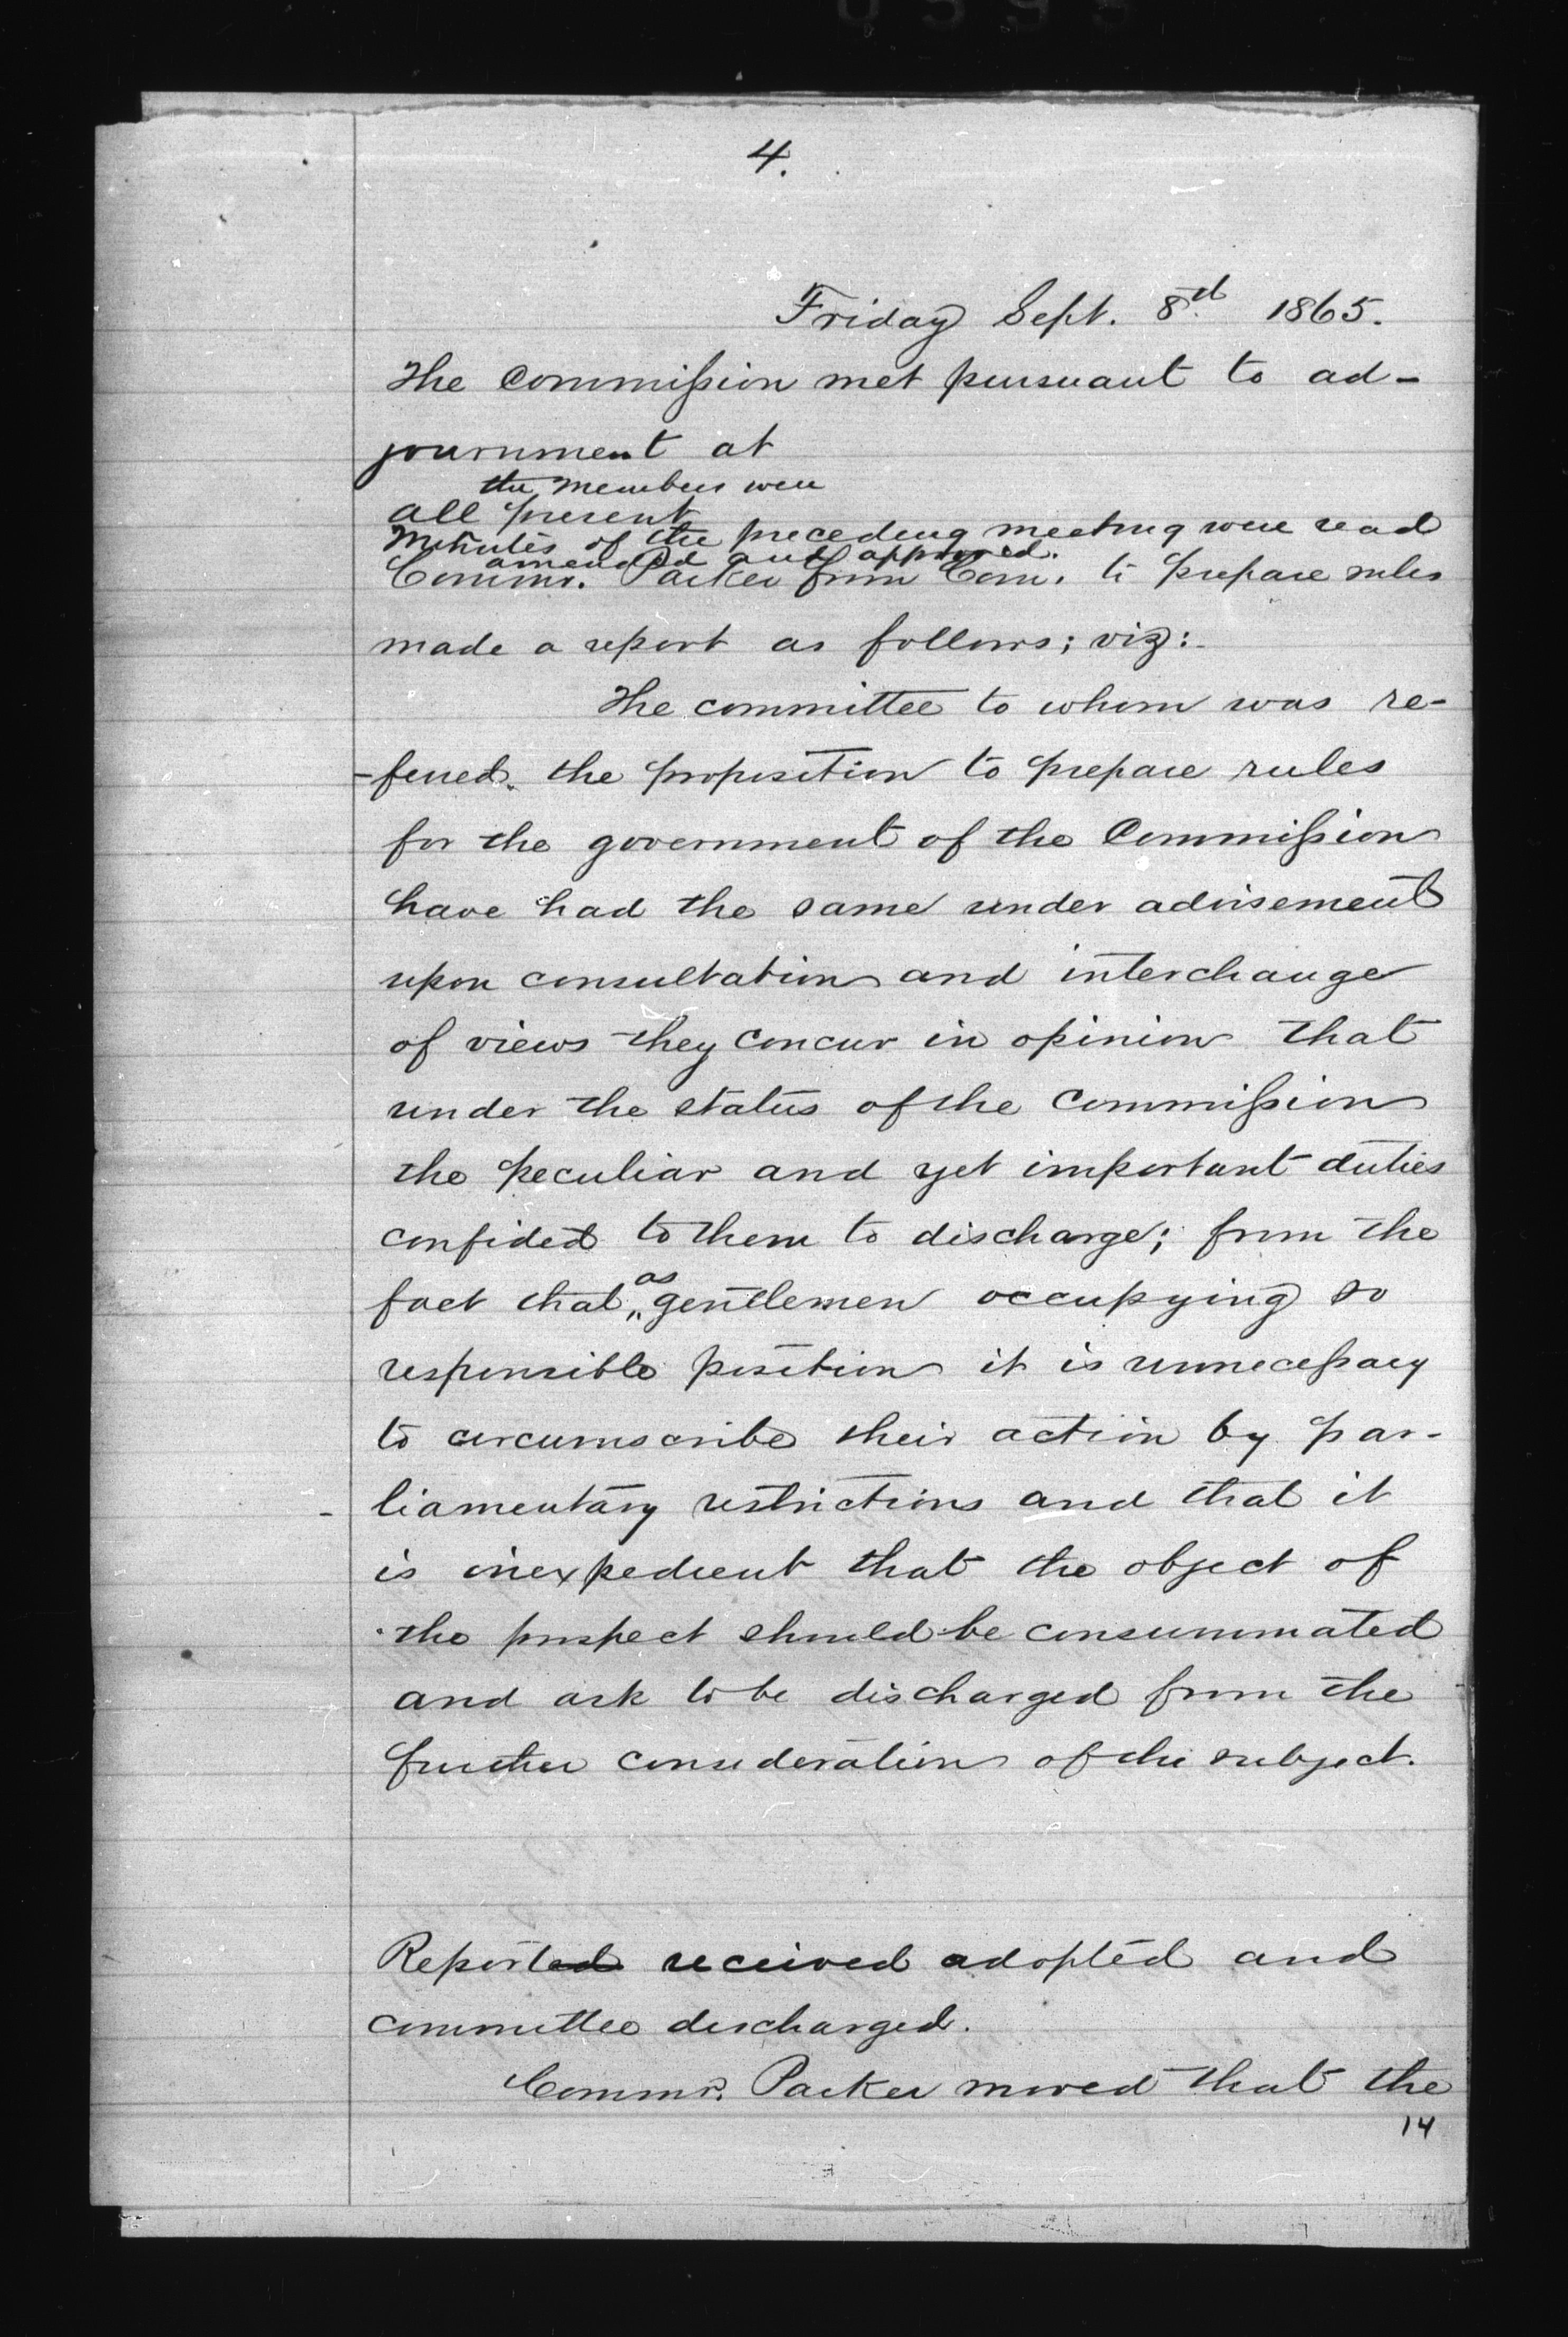 4.
Friday Sept. 8th 1865.
The Commission met pursuant to ad-
journment at
the members were
all present
Minutes of the preceding meeting were read
amended and approved.
Commr. Parker from Com. to prepare rules
made a report as follows; viz:-
The committee to whom was re-
-ferred the proposition to prepare rules
for the government of the Commission
have had the same under advisement
upon consultation and interchange
of views they concur in opinion that
under the status of the Commission
the peculiar and yet important duties
confided to them to discharge; from the
fact that as gentlemen occupying so
responsible position it is unnecessary
to circumscribe their action by par-
liamentary restrictions and that it
is inexpedient that the object of
the prospect should be consummated
and ask to be discharged from the
further consideration of the subject.
Reported received adopted and
committee discharged.
Commr. Parker moved that the
14